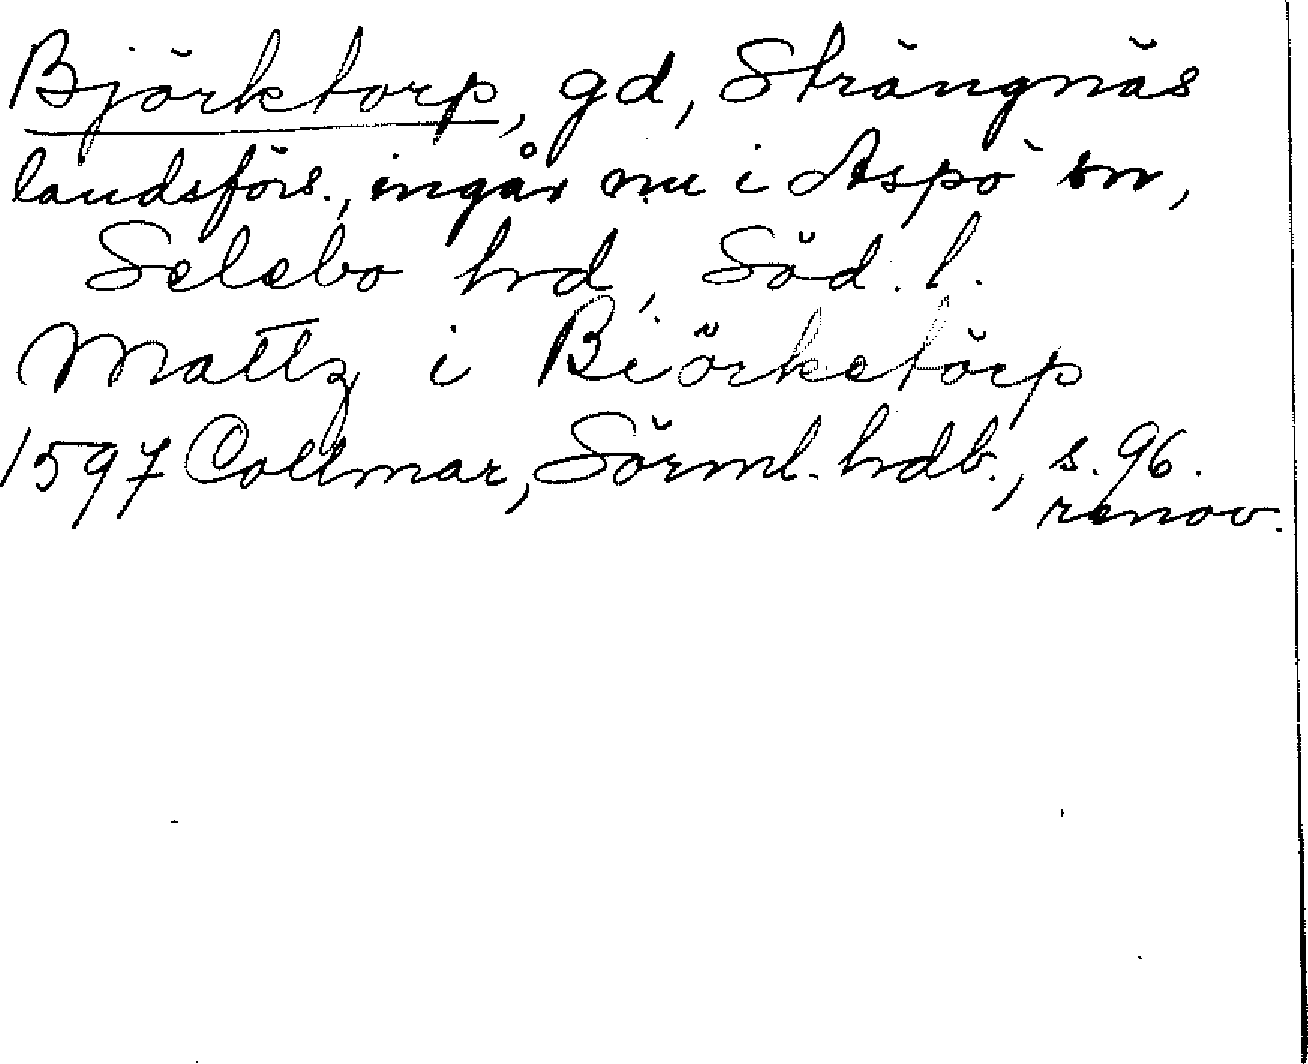 Björktorp, gd, Strängnäs
landsförs., ingår nu i Aspö sn,
Selebo hd, Söd. l.
Mattz i Biörketörp
1597 Collmar, Sörml. hdb., s. 96.
renov.